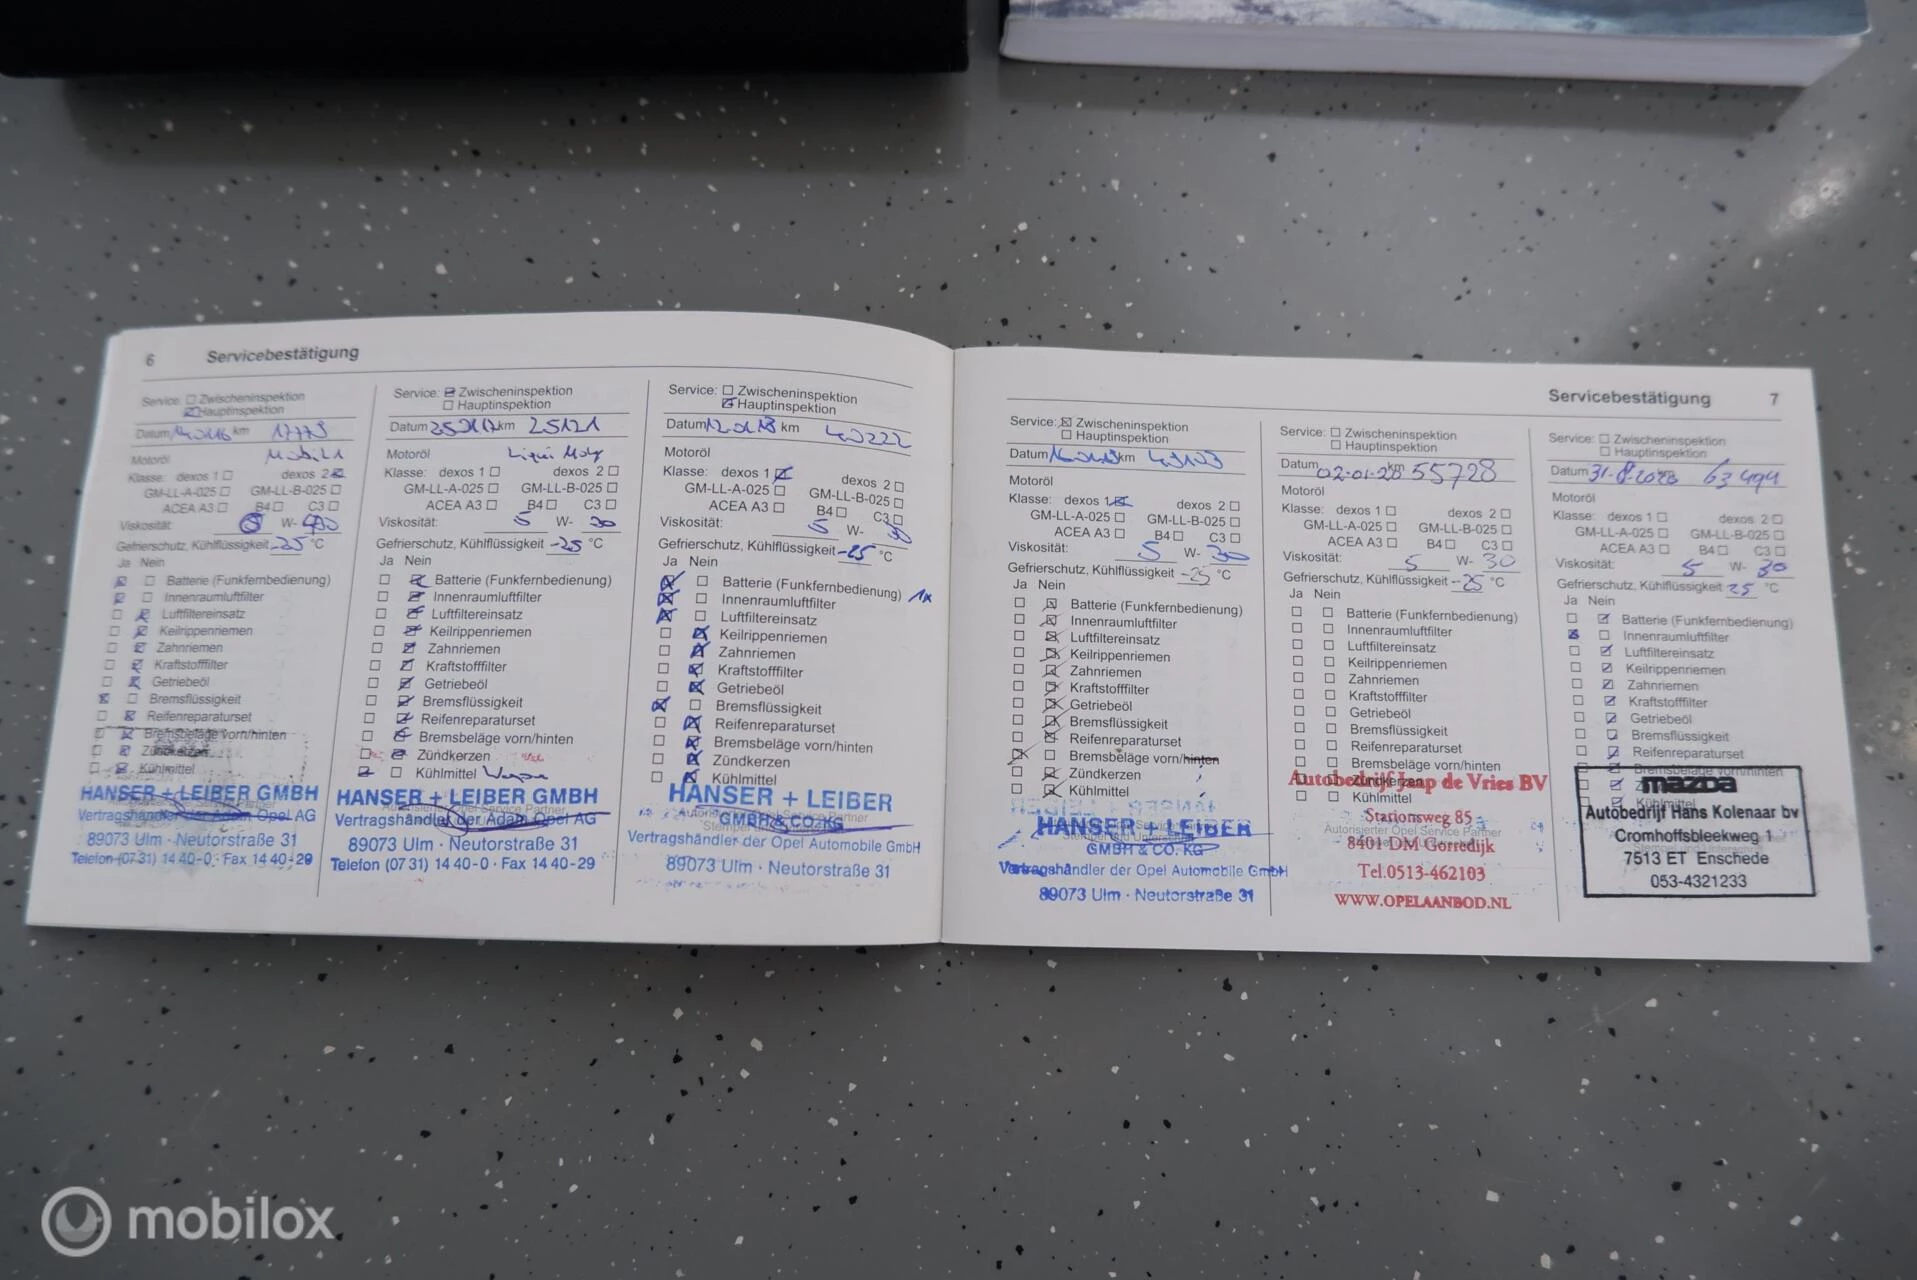 6 Servicebestätigung
Service: Zwischeninspektion
Hauptinspektion
Datum km 17778
Motoröl Mobil 1
Klasse: dexos 1 dexos 2
GM-LL-A-025 GM-LL-B-025
ACEA A3 B4 C3
Viskosität: W-
Gefrierschutz, Kühlflüssigkeit -25 °C
Ja Nein
Batterie (Funkfernbedienung)
Innenraumluftfilter
Luftfiltereinsatz
Keilrippenriemen
Zahnriemen
Kraftstofffilter
Getriebeöl
Bremsflüssigkeit
Reifenreparaturset
Bremsbeläge vorn/hinten
Zündkerzen
Kühlmittel
HANSER + LEIBER GMBH
Vertragshändler der Adam Opel AG
89073 Ulm · Neutorstraße 31
Telefon (07 31) 14 40-0 · Fax 14 40-29
Service: Zwischeninspektion
Hauptinspektion
Datum km 25121
Motoröl Liqui Moly
Klasse: dexos 1 dexos 2
GM-LL-A-025 GM-LL-B-025
ACEA A3 B4 C3
Viskosität: 5 W- 30
Gefrierschutz, Kühlflüssigkeit -25 °C
Ja Nein
Batterie (Funkfernbedienung)
Innenraumluftfilter
Luftfiltereinsatz
Keilrippenriemen
Zahnriemen
Kraftstofffilter
Getriebeöl
Bremsflüssigkeit
Reifenreparaturset
Bremsbeläge vorn/hinten
Zündkerzen
Kühlmittel
HANSER + LEIBER GMBH
Vertragshändler der Adam Opel AG
89073 Ulm · Neutorstraße 31
Telefon (07 31) 14 40-0 · Fax 14 40-29
Service: Zwischeninspektion
Hauptinspektion
Datum km 40222
Motoröl
Klasse: dexos 1 dexos 2
GM-LL-A-025 GM-LL-B-025
ACEA A3 B4 C3
Viskosität: 5 W- 30
Gefrierschutz, Kühlflüssigkeit -25 °C
Ja Nein
Batterie (Funkfernbedienung) 1x
Innenraumluftfilter
Luftfiltereinsatz
Keilrippenriemen
Zahnriemen
Kraftstofffilter
Getriebeöl
Bremsflüssigkeit
Reifenreparaturset
Bremsbeläge vorn/hinten
Zündkerzen
Kühlmittel
HANSER + LEIBER
GMBH & CO. KG
Vertragshändler der Opel Automobile GmbH
89073 Ulm · Neutorstraße 31
Servicebestätigung 7
Service: Zwischeninspektion
Hauptinspektion
Datum km
Motoröl
Klasse: dexos 1 dexos 2
GM-LL-A-025 GM-LL-B-025
ACEA A3 B4 C3
Viskosität: 5 W- 30
Gefrierschutz, Kühlflüssigkeit -25 °C
Ja Nein
Batterie (Funkfernbedienung)
Innenraumluftfilter
Luftfiltereinsatz
Keilrippenriemen
Zahnriemen
Kraftstofffilter
Getriebeöl
Bremsflüssigkeit
Reifenreparaturset
Bremsbeläge vorn/hinten
Zündkerzen
Kühlmittel
HANSER + LEIBER
GMBH & CO. KG
Vertragshändler der Opel Automobile GmbH
89073 Ulm · Neutorstraße 31
Service: Zwischeninspektion
Hauptinspektion
Datum 02-01-20 km 55728
Motoröl
Klasse: dexos 1 dexos 2
GM-LL-A-025 GM-LL-B-025
ACEA A3 B4 C3
Viskosität: 5 W- 30
Gefrierschutz, Kühlflüssigkeit -25 °C
Ja Nein
Batterie (Funkfernbedienung)
Innenraumluftfilter
Luftfiltereinsatz
Keilrippenriemen
Zahnriemen
Kraftstofffilter
Getriebeöl
Bremsflüssigkeit
Reifenreparaturset
Bremsbeläge vorn/hinten
Zündkerzen
Kühlmittel
Autobedrijf Jaap de Vries BV
Stationsweg 85
Autorisierter Opel Service Partner
8401 DM Gorredijk
Tel.0513-462103
WWW.OPELAANBOD.NL
Service: Zwischeninspektion
Hauptinspektion
Datum km 63494
Motoröl
Klasse: dexos 1 dexos 2
GM-LL-A-025 GM-LL-B-025
ACEA A3 B4 C3
Viskosität: 5 W- 30
Gefrierschutz, Kühlflüssigkeit 25 °C
Ja Nein
Batterie (Funkfernbedienung)
Innenraumluftfilter
Luftfiltereinsatz
Keilrippenriemen
Zahnriemen
Kraftstofffilter
Getriebeöl
Bremsflüssigkeit
Reifenreparaturset
Bremsbeläge vorn/hinten
Kühlmittel
mazda
Autobedrijf Hans Kolenaar bv
Cromhoffsbleekweg 1
7513 ET Enschede
053-4321233
mobilox